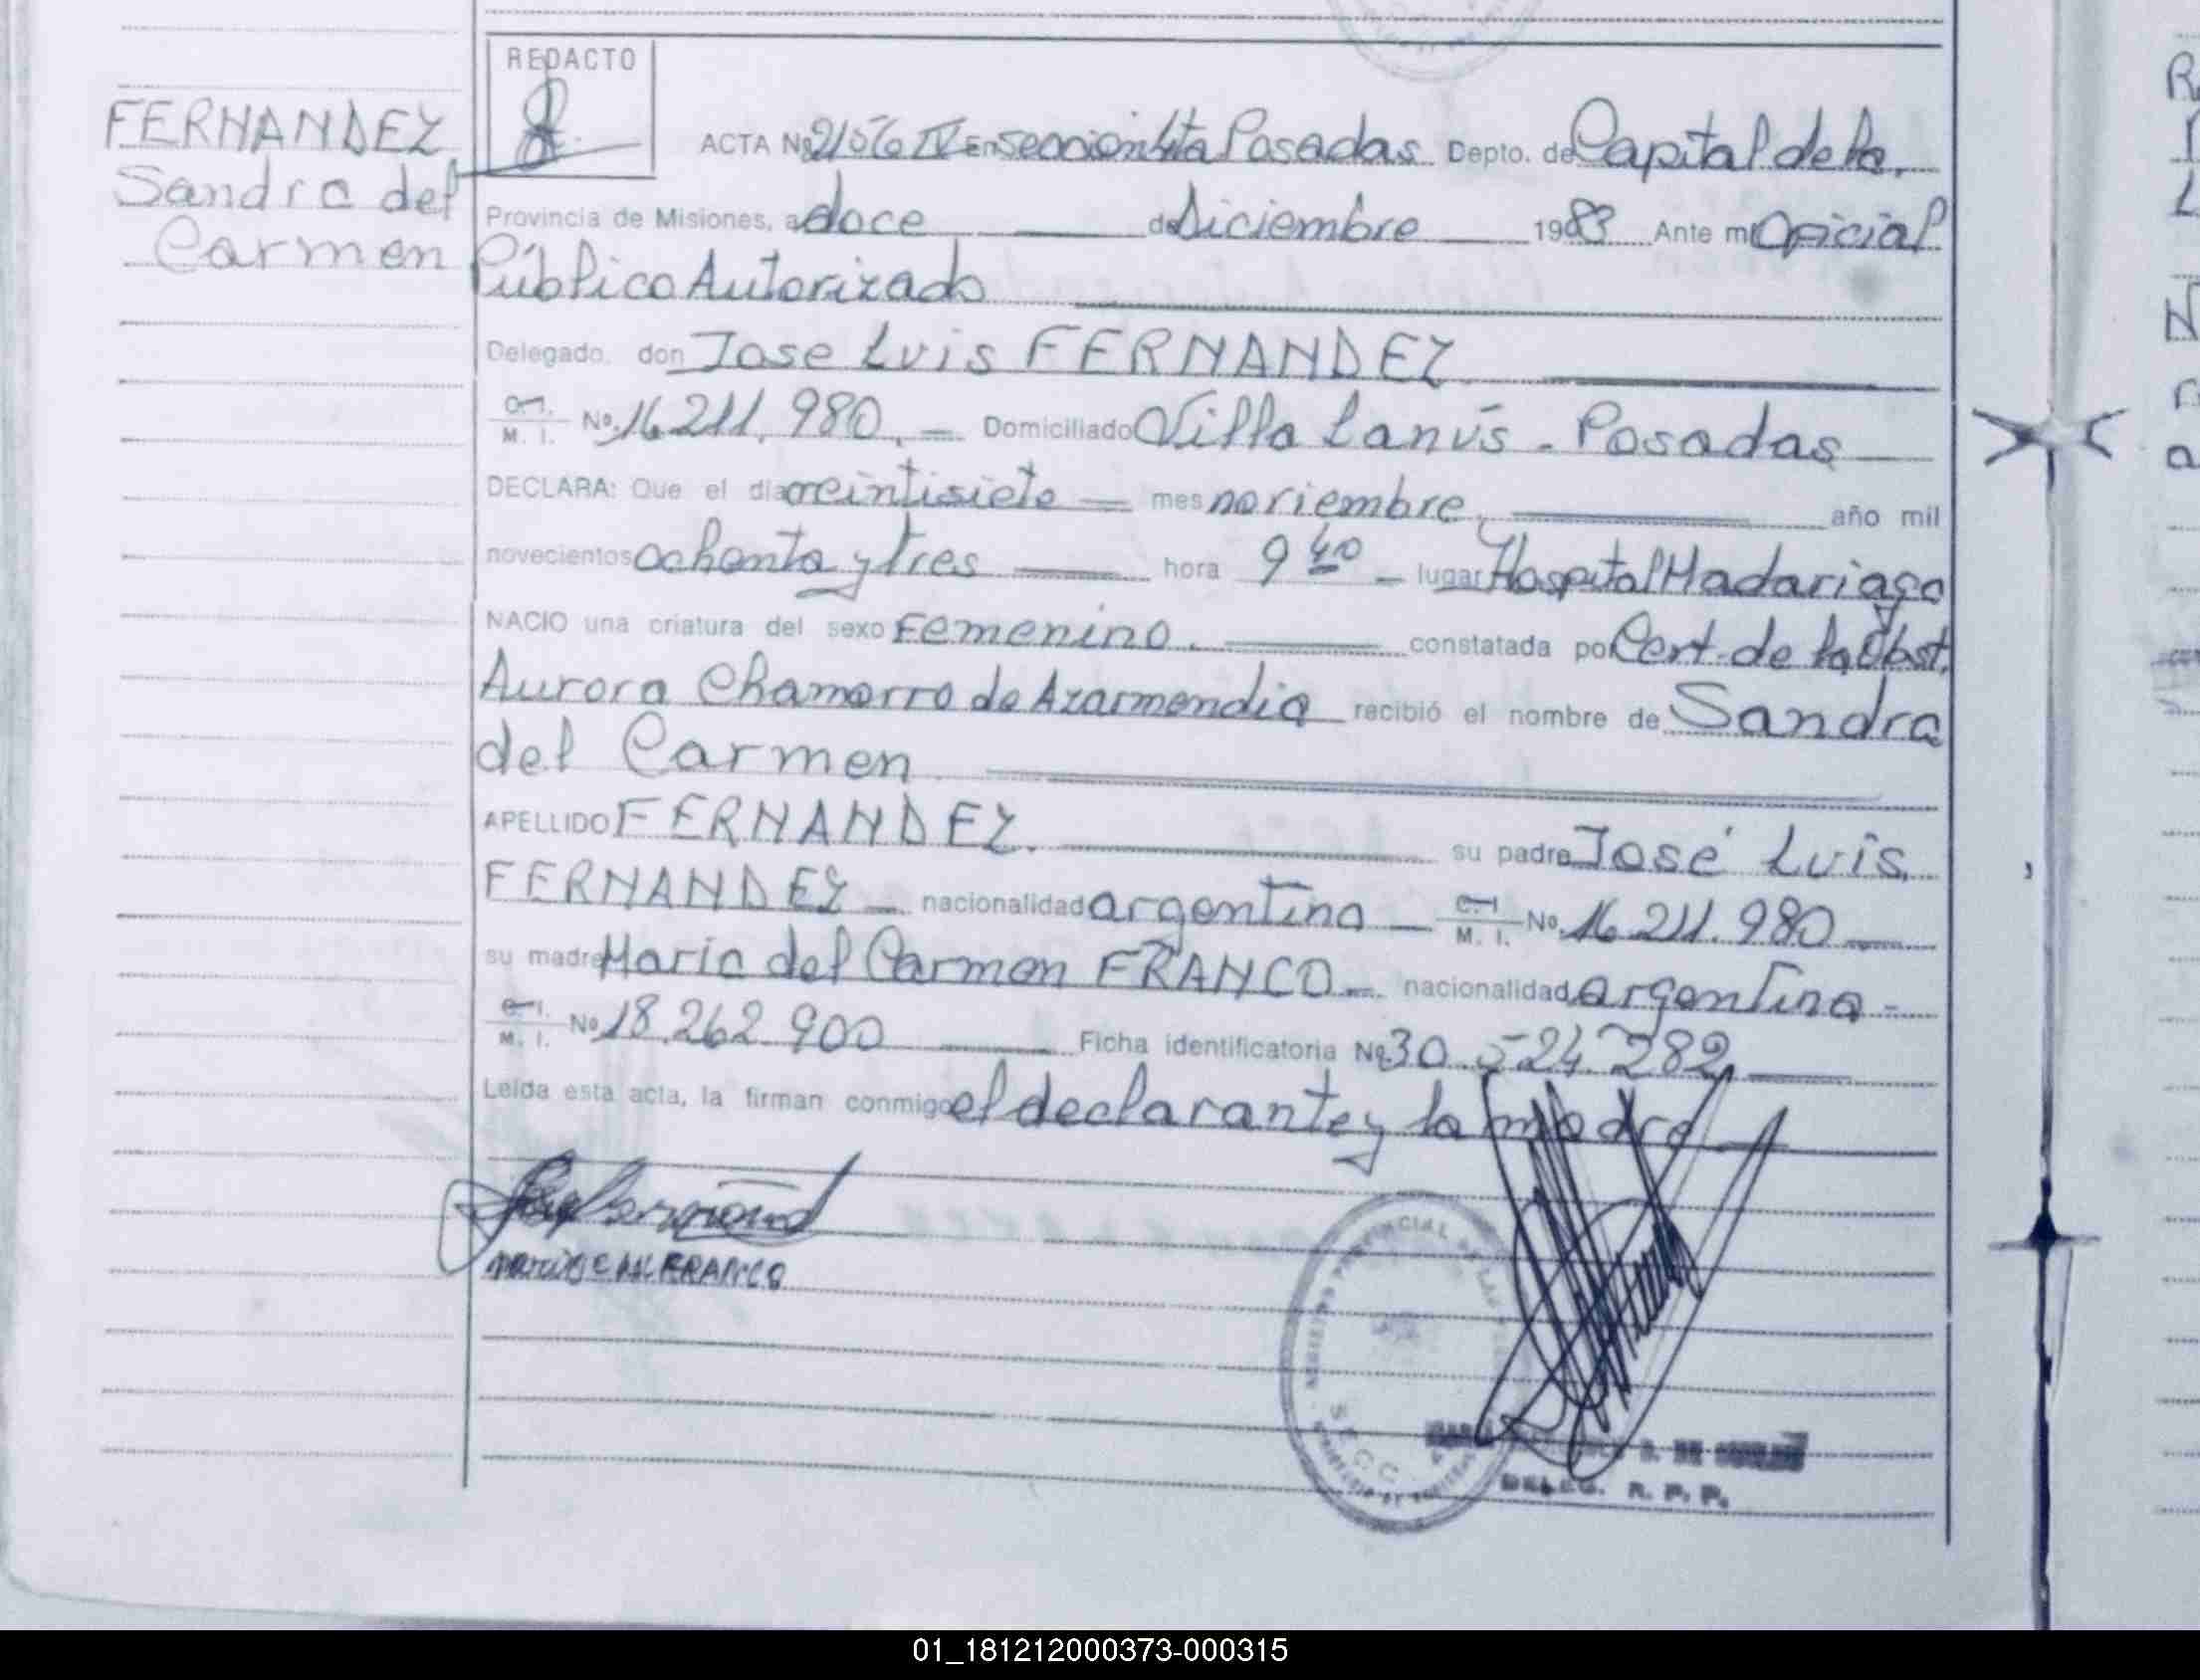 REDACTO
FERNANDEZ
Sandra del
Carmen
ACTA Nº 2156 IV En sección 6ta Posadas Depto. de Capital de la
Provincia de Misiones, a doce de Diciembre 1983 Ante mi Oficial
Público Autorizado
Delegado, don Jose Luis FERNANDEZ
C. I. M. I. Nº 16.211.980.- Domiciliado Villa Lanús - Posadas
DECLARA: Que el dia veintisiete mes noviembre, año mil
novecientos ochenta y tres hora 9 40 lugar Hospital Madariaga
NACIO una criatura del sexo Femenino. constatada por Cert. de la Obst.
Aurora Chamorro de Azarmendia recibió el nombre de Sandra
del Carmen
APELLIDO FERNANDEZ. su padre José Luis
FERNANDEZ nacionalidad argentina C. I. M. I. Nº 16.211.980
su madre Maria del Carmen FRANCO nacionalidad argentina -
C. I. M. I. Nº 18.262.900 Ficha identificatoria Nº 30.524.282
Leída esta acta, la firman conmigo el declarante y la madre
FRANCO
PROVINCIAL DE LAS
S.E.C.C.
DELEG. R. P. P.
01_181212000373-000315